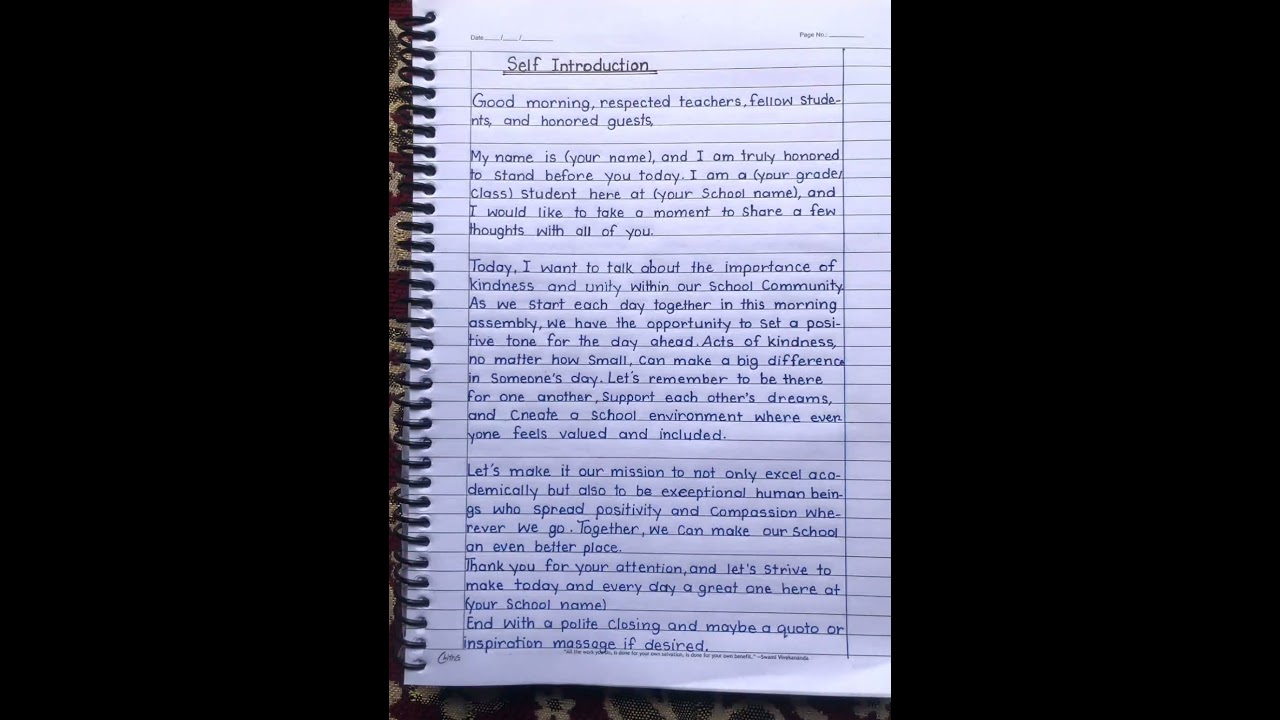 Date___/___/______ Page No.:________
Self Introduction
Good morning, respected teachers, fellow stude-
nts, and honored guests,
My name is (your name), and I am truly honored
to stand before you today. I am a (your grade/
Class) student here at (your School name), and
I would like to take a moment to share a few
thoughts with all of you.
Today, I want to talk about the importance of
kindness and unity within our School Community
As we start each day together in this morning
assembly, we have the opportunity to set a posi-
tive tone for the day ahead. Acts of kindness,
no matter how Small, Can make a big difference
in Someone's day. Let's remember to be there
for one another, Support each other's dreams,
and Create a School environment where ever
yone feels valued and included.
Let's make it our mission to not only excel aca-
demically but also to be exeeptional human bein-
gs who spread positivity and Compassion whe-
rever we go. Together, we Can make our School
an even better place.
Thank you for your attention, and let's strive to
make today and every day a great one here at
(your School name)
End with a polite closing and maybe a quoto or
inspiration massage if desired.
"All the work you do, is done for your own salvation, is done for your own benefit." —Swami Vivekananda